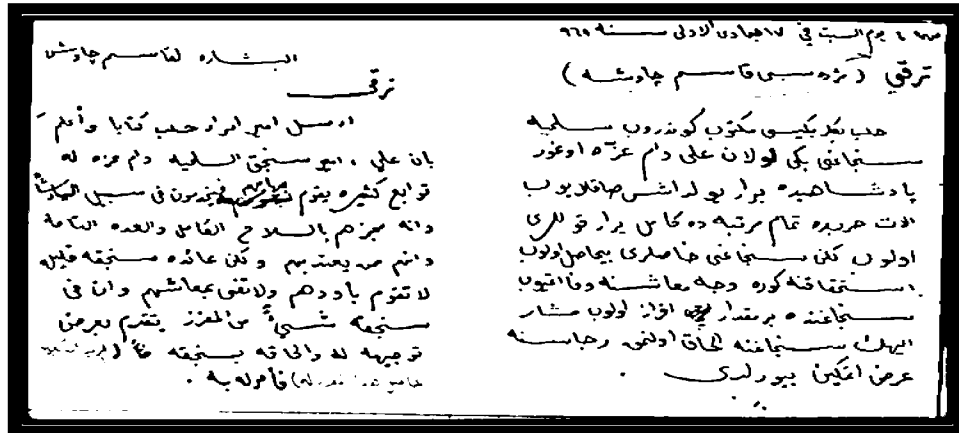 يوم السبت في ١٧ جمادى الاولى سنه ٩٦٥
ترقي ( كرده سى قاسم چاوشه )
حلب بكلربكيسى مكتوب كوندروب سلميه
سنجاغى بكى اولان على دام عزه اوغور
پادشاهيده يرار يولداشلر صاقلايوب
الات حربده تمام مرتبه ده كامل يرار قوللرى
اولوب لكن سنجاغى خاصلرى بيحاصل اولوب
استحقاقنه كوره وجه معاشنه وفا اتميوب
سنجاغنده بر مقدار افراز اولوب مشار
اليهك سنجاغنه الحاق اولنمق رجاسنه
عرض اتمكين بيورلدى .
البشاره لقاسم چاوش
ترقى
ارسل امير امراء حلب كتابا وأعلم
بان علي امير سنجق السلميه دام عزه له
توابع كثيره يقوم فيخدمون في سبيل
وانه مجهزهم بالسلاح الكامل والعده التامة
وانهم من يعتد بهم ولكن عائده سنجقه قليل
لا تقوم باودهم ولا تفي بمعاشهم وان في
سنجقه شيئ من المفرز يتقدم بعرض
توجيهه له والحاقه بسنجقه
فأمر له به .